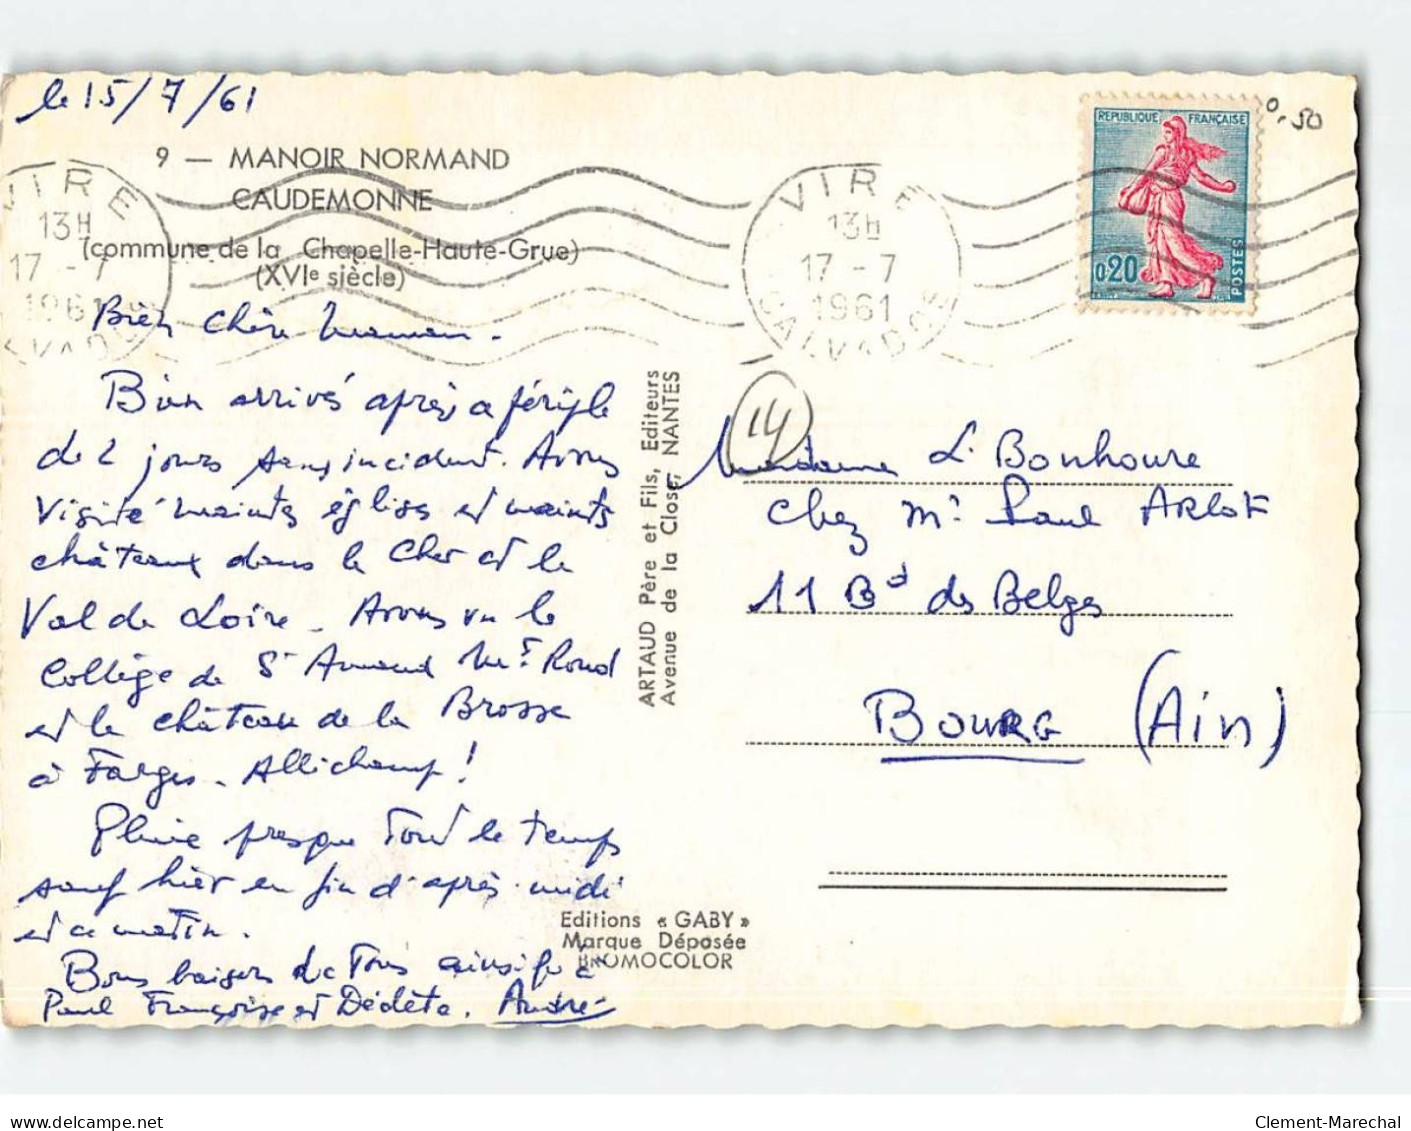 le 15/7/61
9 — MANOIR NORMAND
CAUDEMONNE
(commune de la Chapelle-Haute-Grue)
(XVIe siècle)
VIRE
13H
17 - 7
1961
CALVADOS
VIRE
13H
17 - 7
1961
CALVADOS
REPUBLIQUE FRANÇAISE
0,20
POSTES
0,50
Bien chère Maman.
Bien arrivés après ce périple
de 2 jours sans incident. Avons
visité maintes églises et maints
châteaux dans le Cher et le
Val de Loire. Avons vu le
Collège de St Amand Mt Rond
et le château de la Brosse
à Farges-Allichamp!
Pluie presque tout le temps
sauf hier en fin d'après-midi
et ce matin.
Bons baisers de tous ainsi qu'à
Paul Françoise et Dédète. André
ARTAUD Père et Fils, Editeurs
Avenue de la Close, NANTES
Editions « GABY »
Marque Déposée
BROMOCOLOR
14
Madame L. Bonhoure
chez Mr Paul ARLOT
11 Bd des Belges
BOURG (Ain)
www.delcampe.net
Clement-Marechal